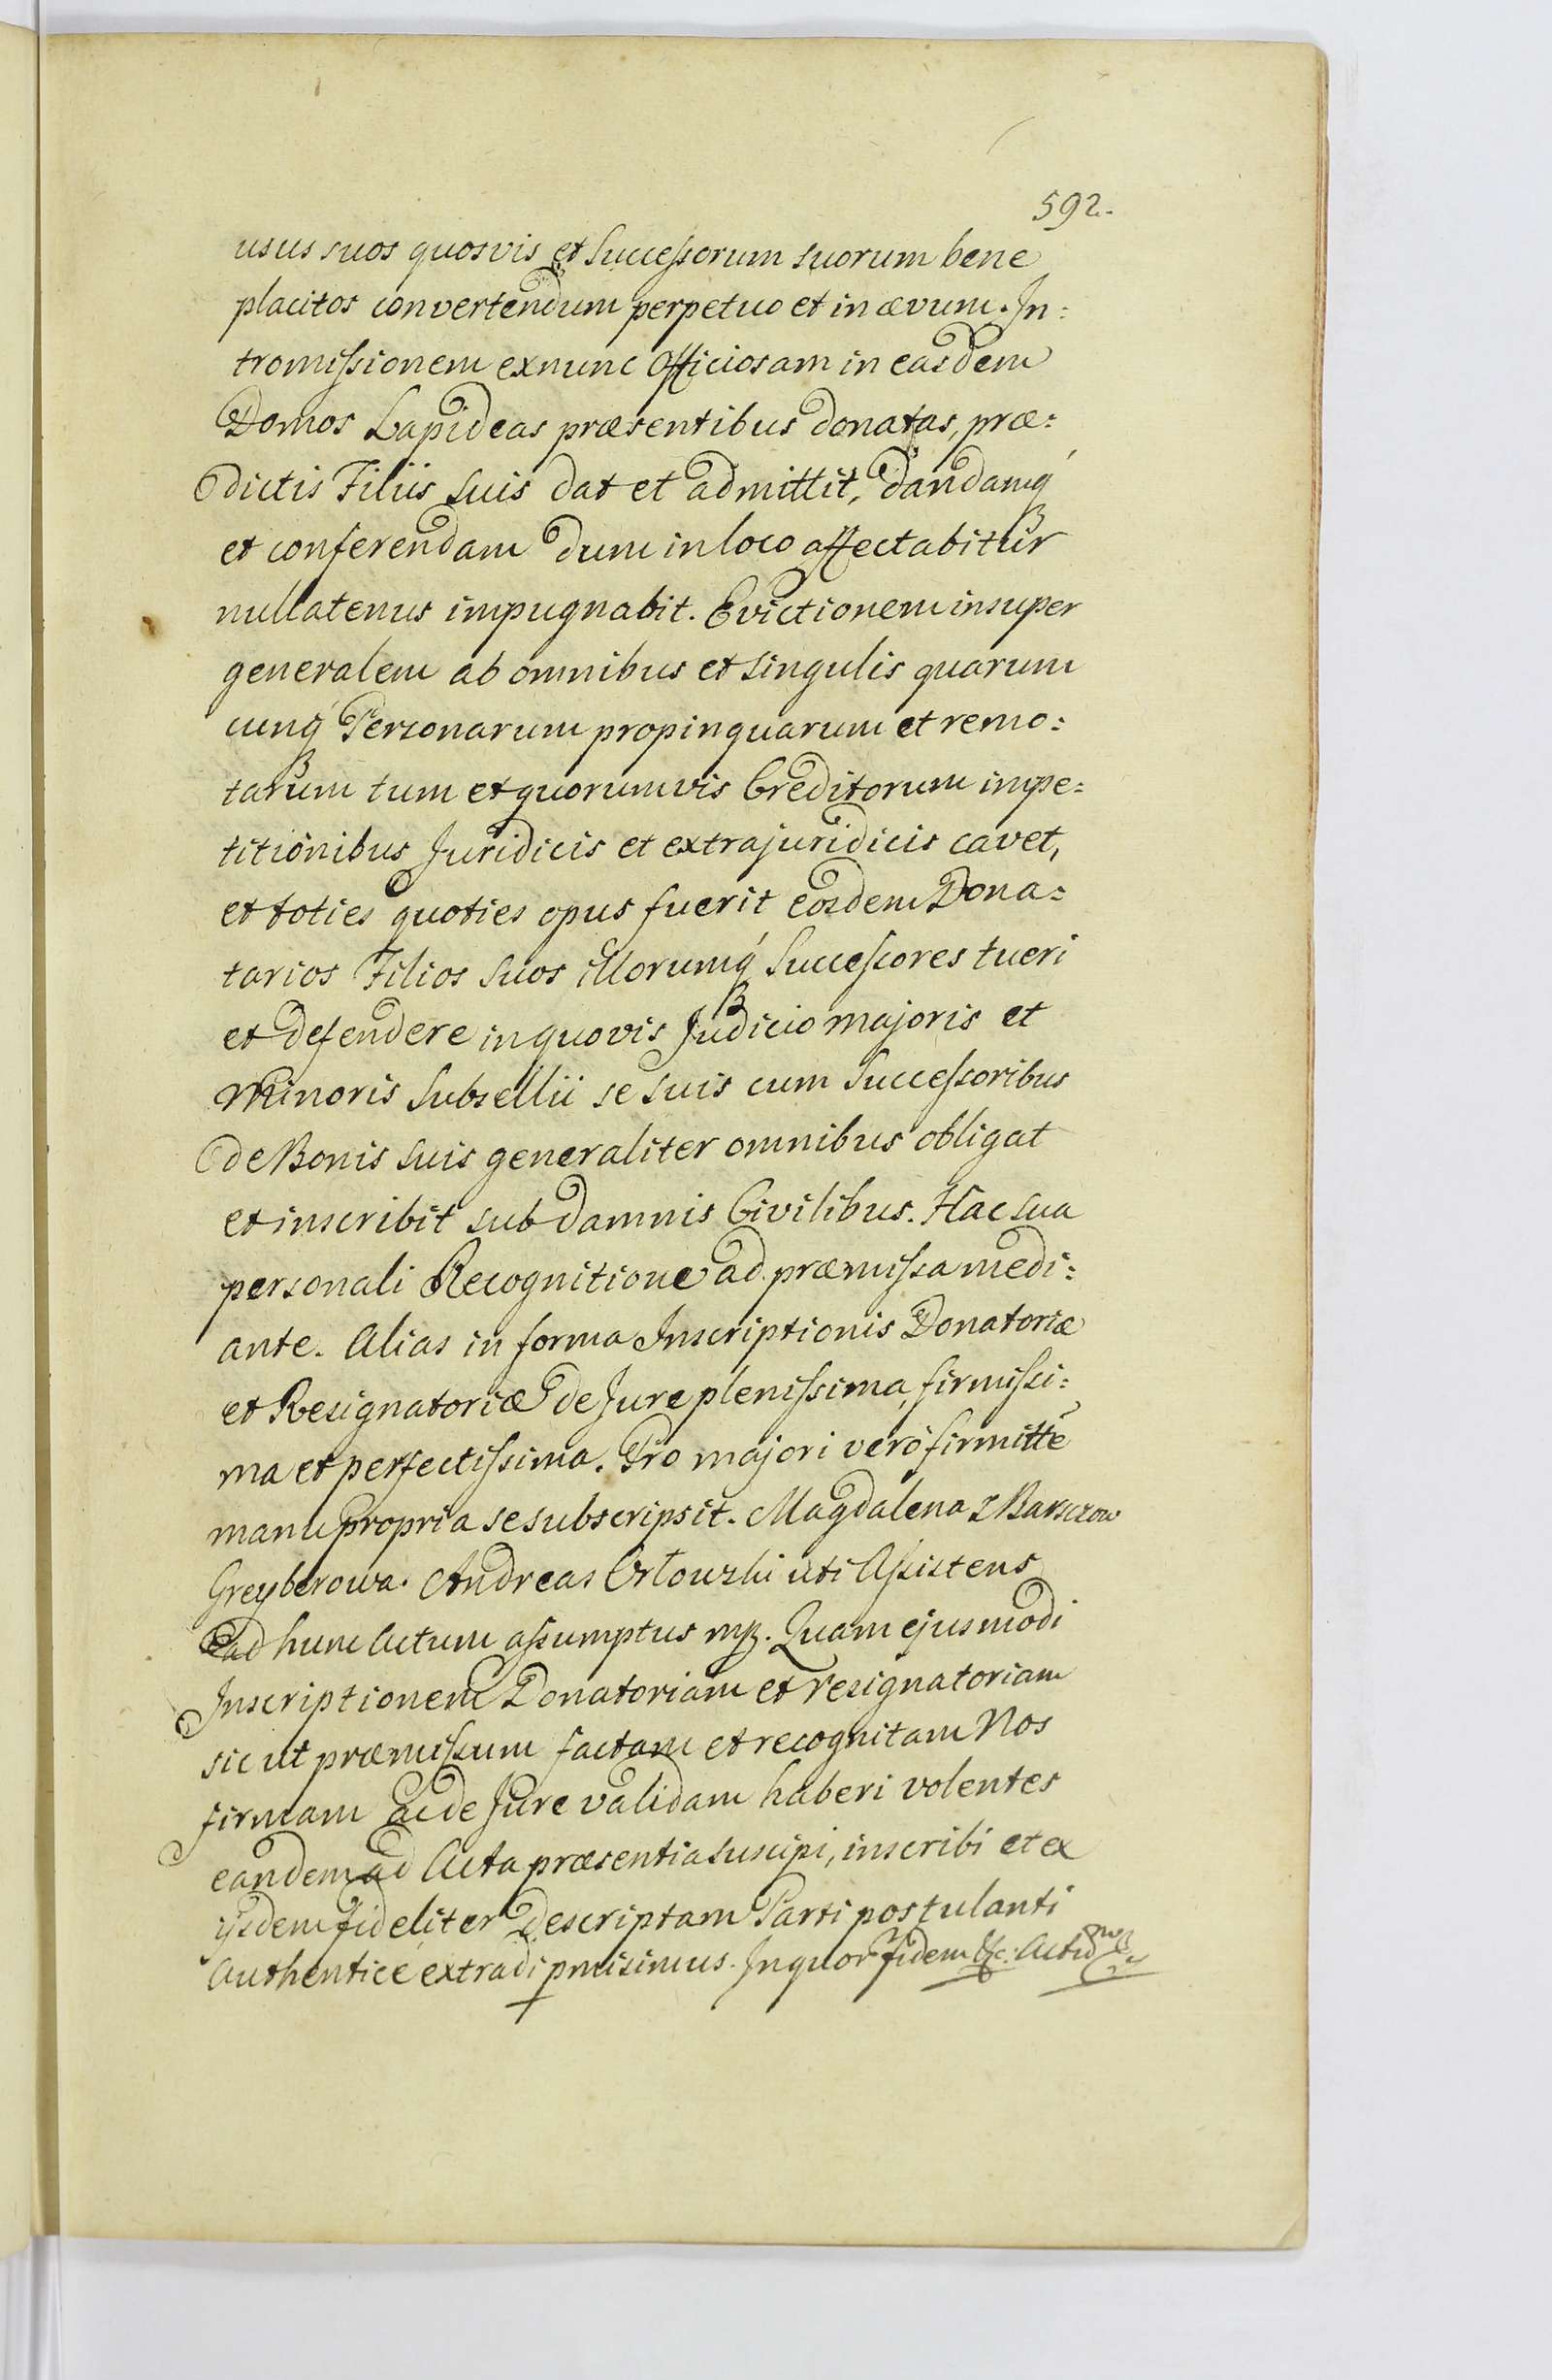 592.
usus suos quosvis et Successorum suorum bene
placitos convertendum perpetuo et in ævum. In:
tromissionem exnunc Officiosam in easdem
Domos Lapideas præsentibus donatas, præ:
dictis Filiis suis dat et admittit, dandamq́
et conferendam dum in loco affectabitur
nullatenus impugnabit. Evictionem insuper
generalem ab omnibus et singulis quarum
cunq́ Personarum propinquarum et remo:
tarum tum et quorumvis Creditorum impe:
titionibus Juridicis et extrajuridicis cavet,
et toties quoties opus fuerit eosdem Dona:
tarios Filios suos illorumq́ Successores tueri
et defendere in quovis Judicio majoris et
Minoris Subsellii se suis cum Successoribus
de Bonis suis generaliter omnibus obligat
et inscribit sub damnis Civilibus. Hac sua
personali Recognitione ad præmissa medi:
ante. Alias in forma Inscriptionis Donatoriæ
et Resignatoriæ de Jure plenissima, firmissi:
ma et perfectissima. Pro majori verò firmitte
manu propria se subscripsit. Magdalena z Barszczow
Greyberowa. Andreas Orłowski uti Assistens
ad hunc Actum assumptus mp. Quam ejusmodi
Inscriptionem Donatoriam et resignatoriam
sic ut præmissum factam et recognitam Nos
firmam ac de Jure validam haberi volentes
eandem ad Acta præsentia suscipi, inscribi et ex
ijsdem fideliter descriptam Parti postulanti
Authenticè extradi pmisimus. In quor fidem &c. Actũ